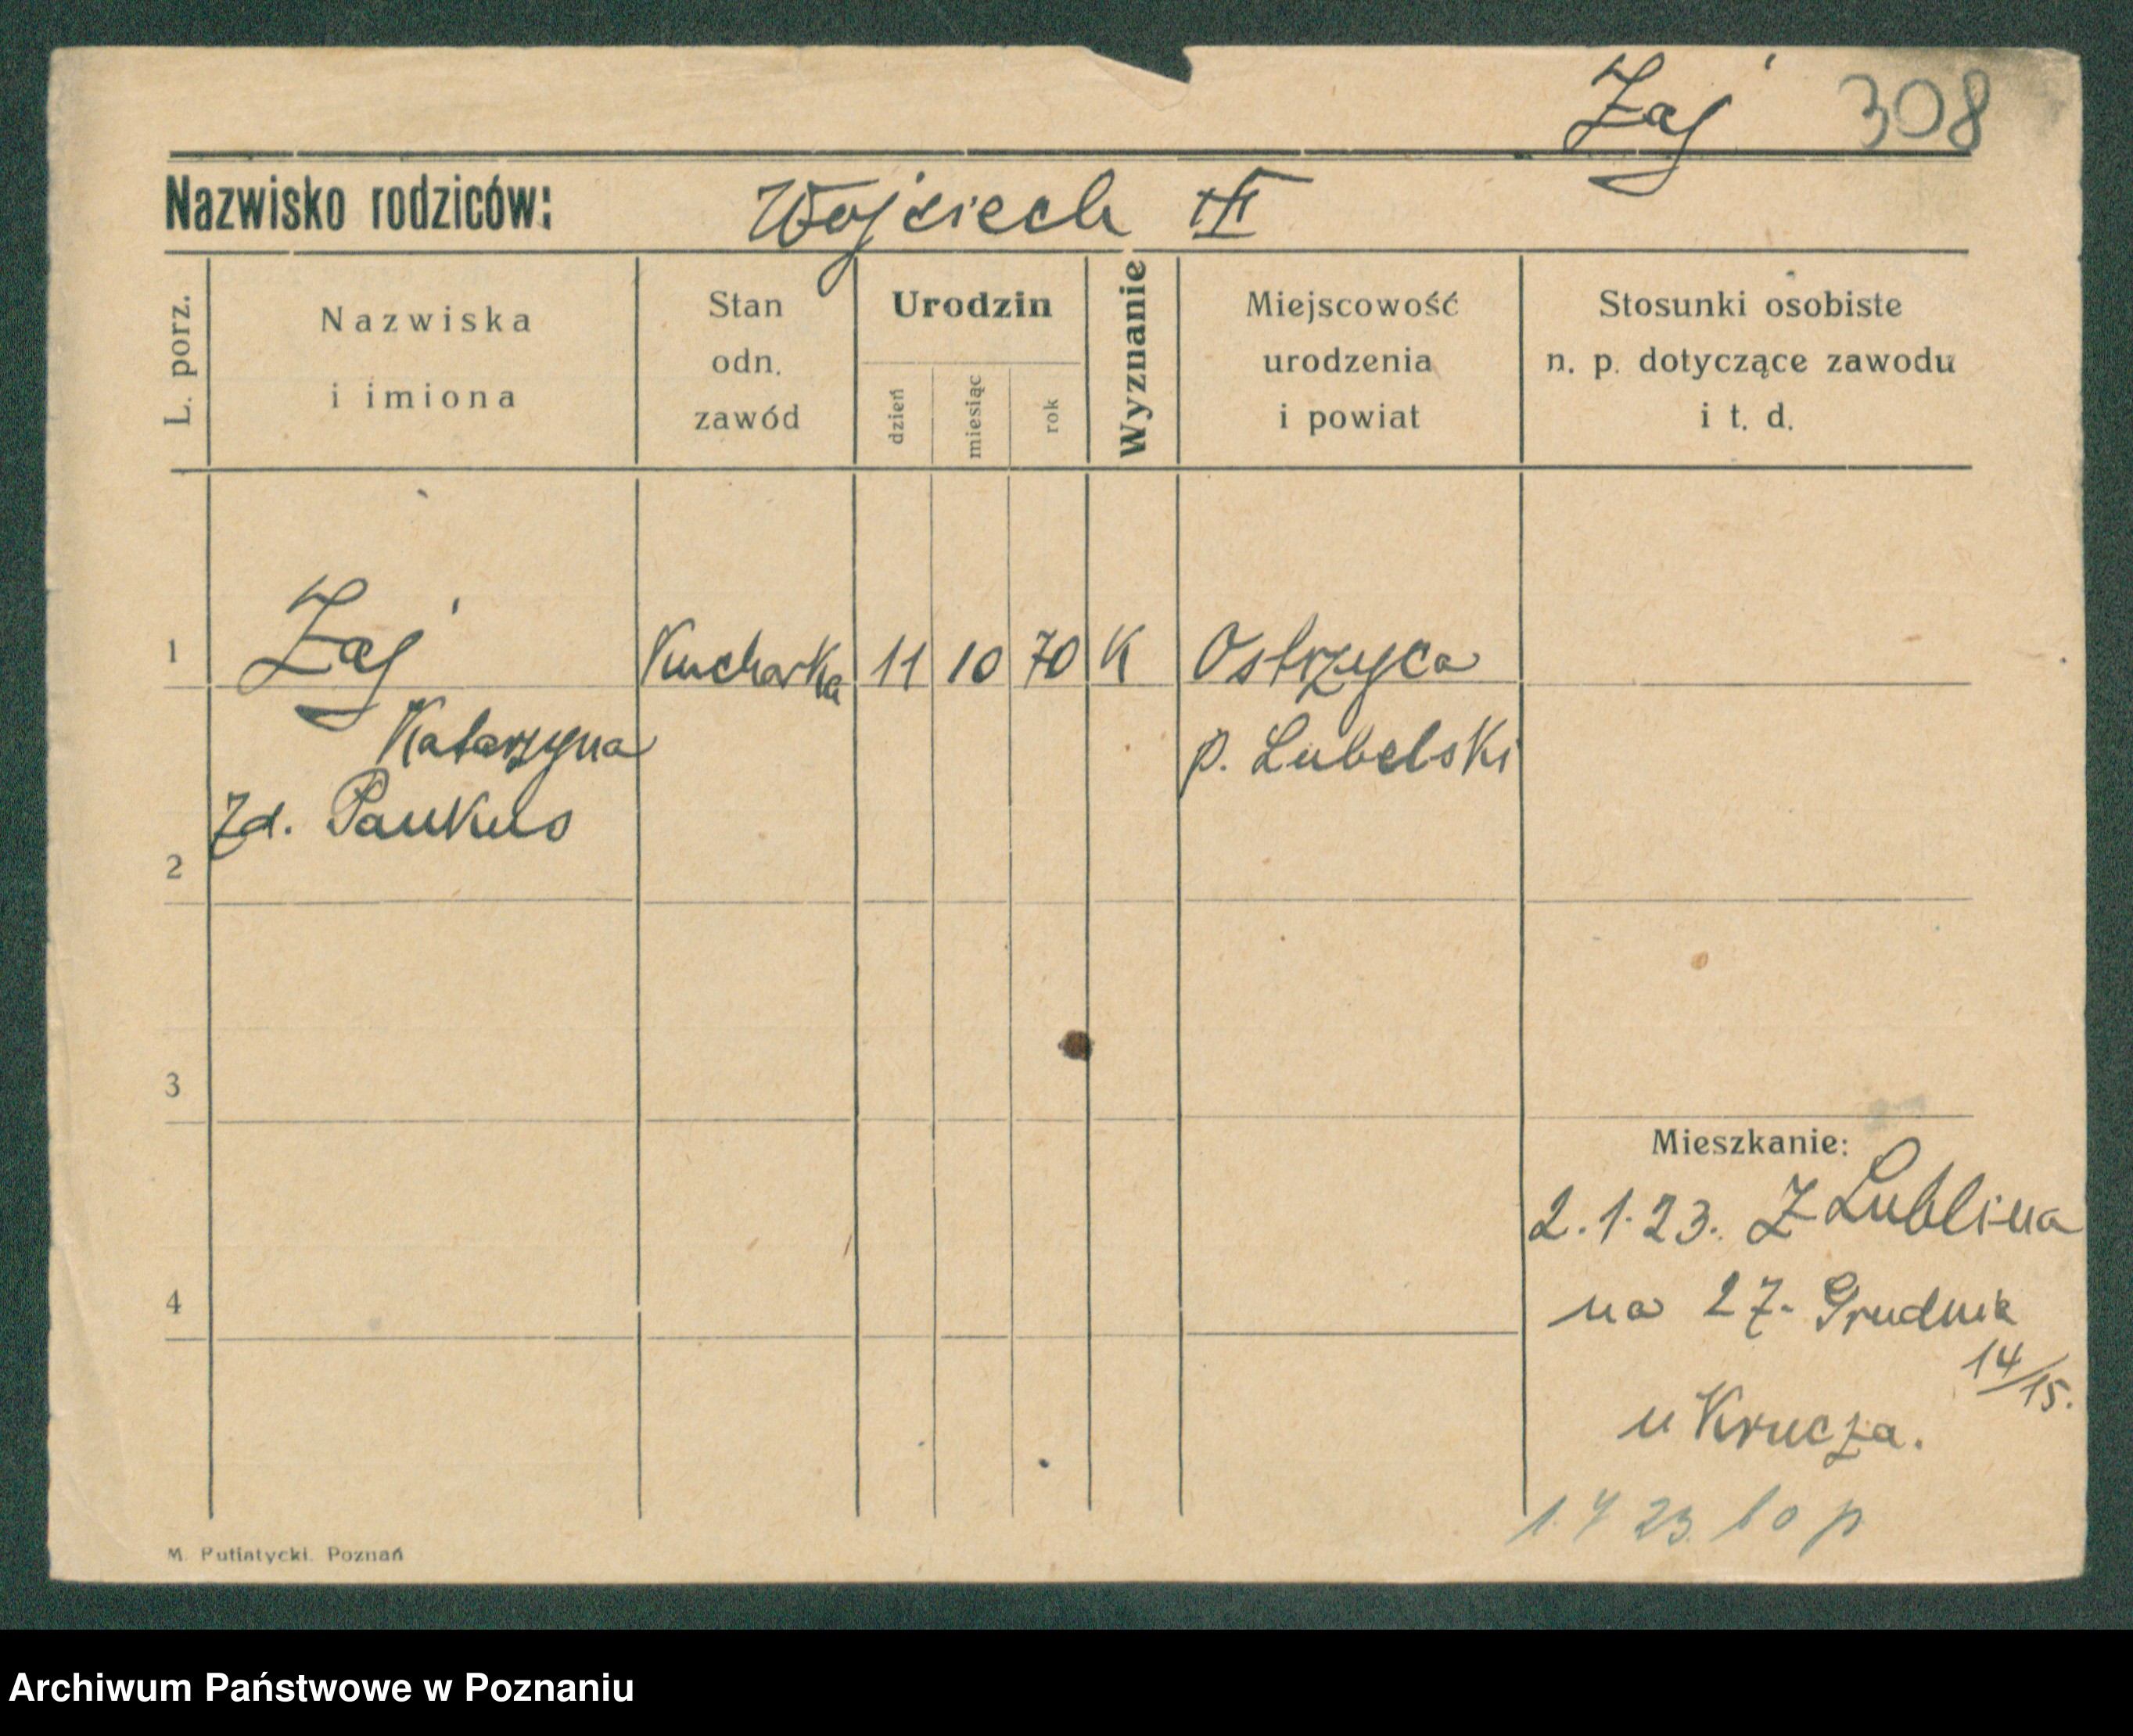 Zaj 308
Nazwisko rodziców: Wojciech
L. porz.
Nazwiska
i imiona
Stan
odn.
zawód
Urodzin
dzień
miesiąc
rok
Wyznanie
Miejscowość
urodzenia
i powiat
Stosunki osobiste
n. p. dotyczące zawodu
i t. d.
1 Zaj Kucharka 11 10 70 K Ostrzyca
Katarzyna p. Lubelski
Zd. Paukus
2
3
Mieszkanie:
2.1.23. Z Lublina
4 na 27. Grudnia
14/15.
u Krucza.
23.
M. Putiatycki. Poznań
Archiwum Państwowe w Poznaniu